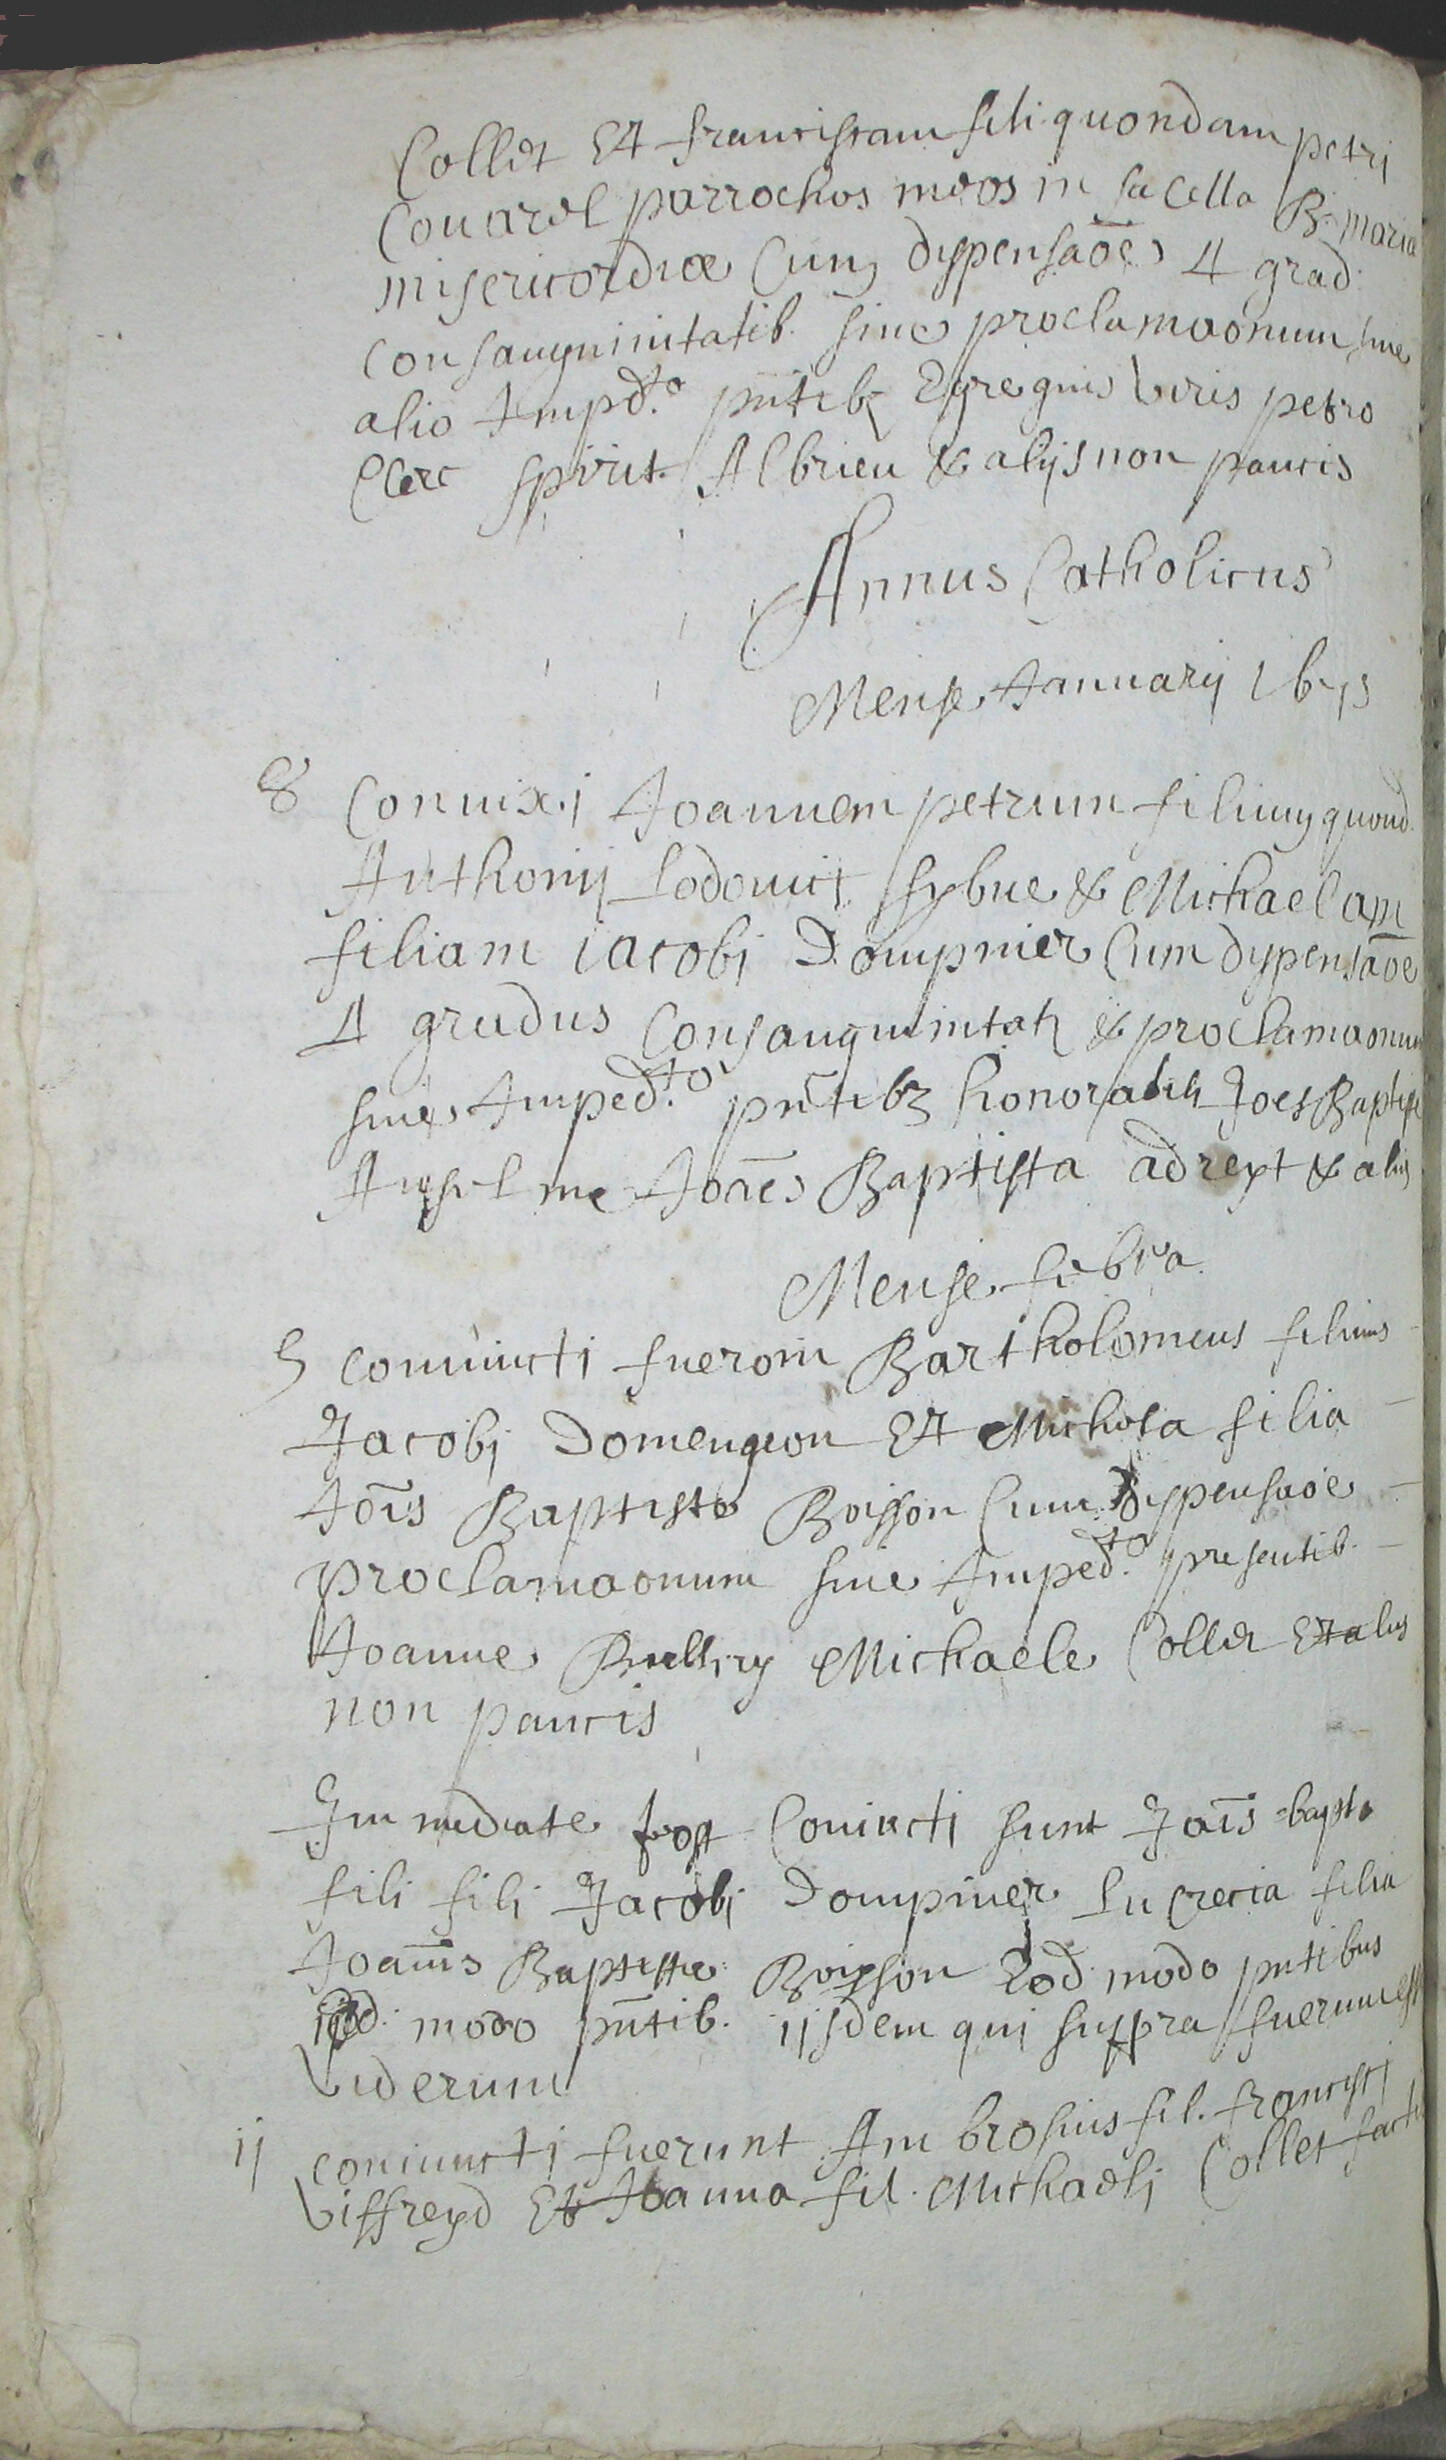 Collet Et franciscam fili quondam petri
Couarel parrochos meos in sacella B. Mariæ
misericordiæ Cum dyspensaõe 4 grad.
consanguinitatib. sine proclamaonum sine
alio Imped.to pñtibz Egregiis Viris petro
Clerc spirit. Albrieu & alijs non paucis
Annus Catholicus
Mense Januarij
8 Coniuxi Joannem petrum filium quond.
Anthonij Lodouici sybue & Michaelam
filiam iacobj Dompnier Cum dypensaõe
4 gradus Consanguinitatz & proclamaonum
sine Imped.to pñtibz honorabili Joes Baptiste
Anselme Joães Baptista adreyt & aliis
Mense febra.
5 coniuncti fueron Bartholomeus filius
Jacobj Domengeon Et Michola filia
Joïs Baptiste Boisson Cum dyspensaoe
proclamaonum sine Imped.to presentib.
Joanne Michaele Collet Et aliis
non paucis
Immediate post Coniucti sunt Joais bapta
fili filj Jacobj Dompnier Lucrecia filia
Joanis Baptiste Boisson Eod. modo pntibus
modo pñtib. ijsdem qui suppra fuerunt
Viderunt
ij coniuncti fuerunt Ambrosius fil. francisci
Viffreyd Et Joanna fil. Michaelj Collet